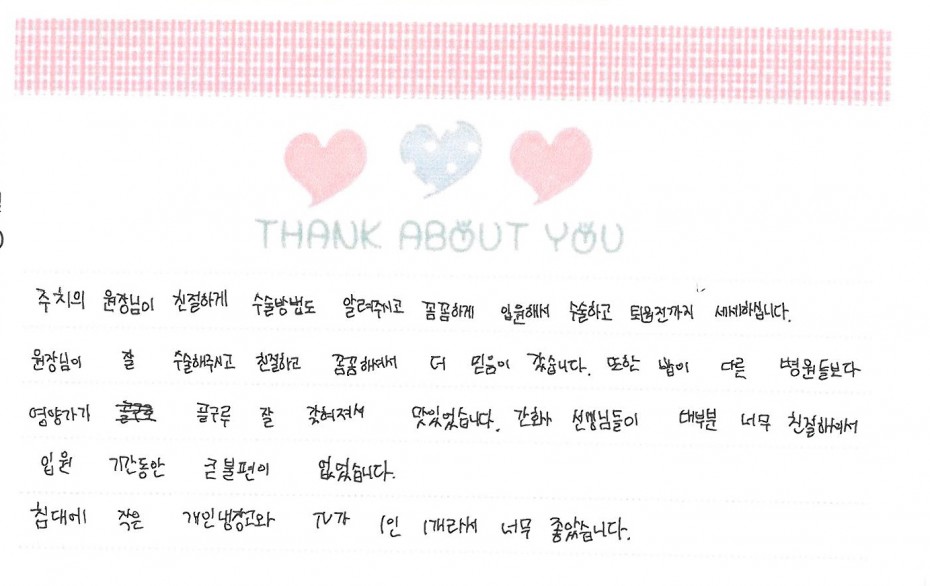 THANK ABOUT YOU
주치의 원장님이 친절하게 수술방법도 알려주시고 꼼꼼하게 입원해서 수술하고 퇴원전까지 세세하십니다.
원장님이 잘 수술해주시고 친절하고 꼼꼼해여서 더 믿음이 갔습니다. 또한 밥이 다른 병원들보다
영양가가 골구루 잘 갖혀져서 맛있었습니다. 간화사 선생님들이 대부분 너무 친절하여서
입원 기간동안 큰 불편이 없었습니다.
침대에 작은 개인냉장고와 TV가 1인 1개라서 너무 좋았습니다.